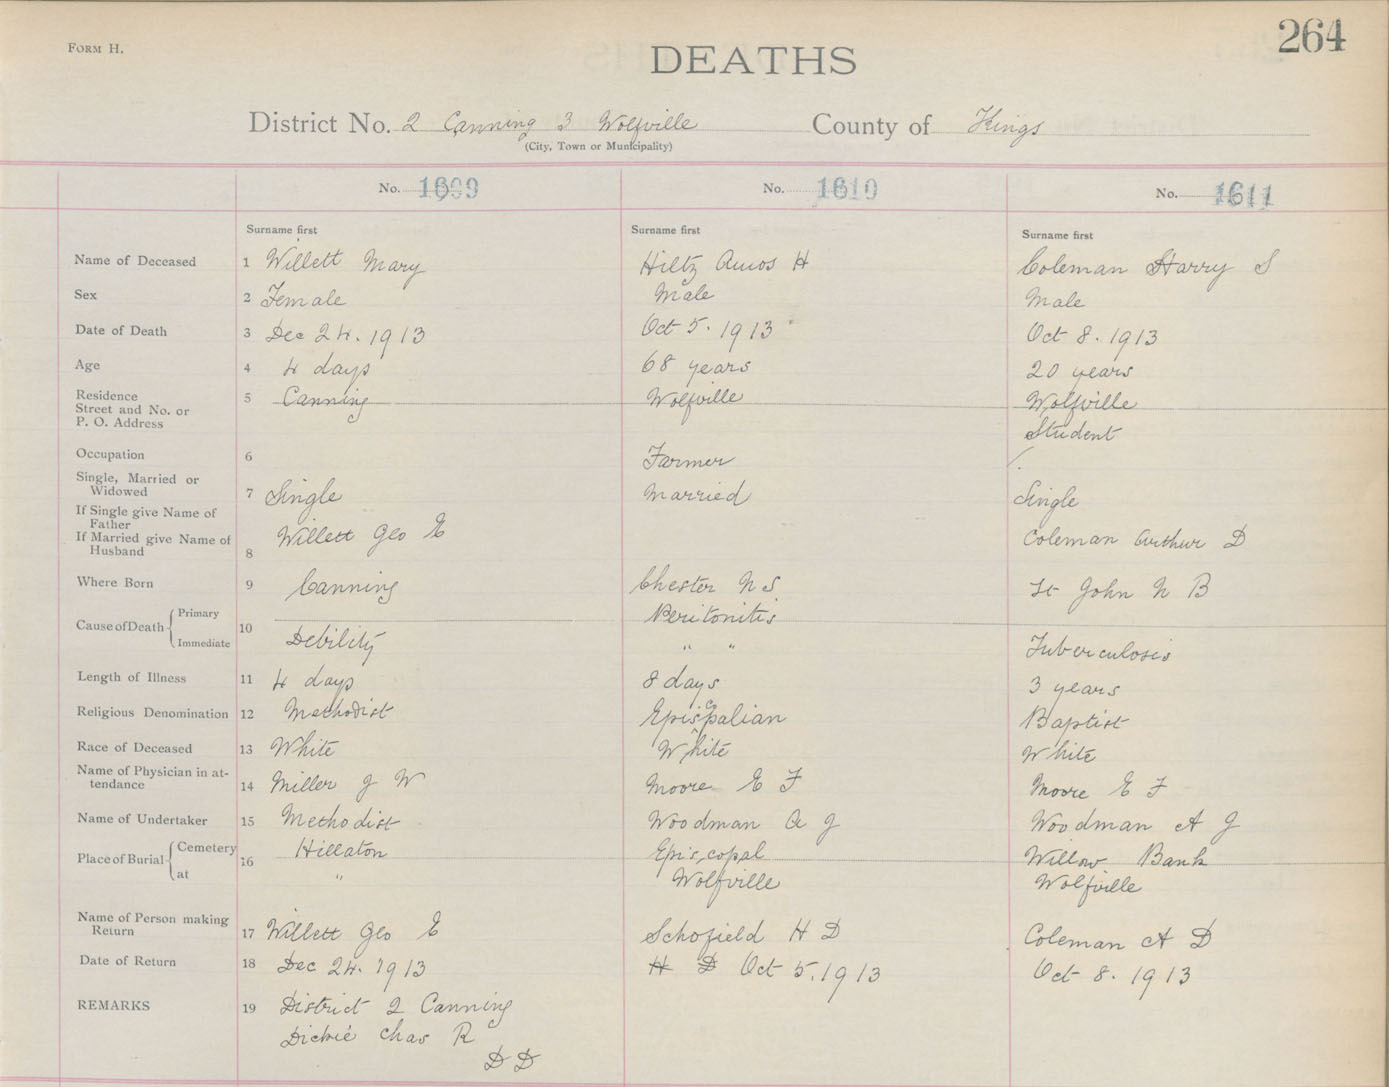 264
FORM H.
DEATHS
District No. 2 Canning 3 Wolfville County of Kings
(City, Town or Municipality)
No. 1609 No. 1610 No. 1611
Surname first Surname first Surname first
Name of Deceased 1 Willett Mary Hiltz Amos H Coleman Harry S
Sex 2 Female Male Male
Date of Death 3 Dec 24. 1913 Oct 5. 1913 Oct 8. 1913
Age 4 4 days 68 years 20 years
Residence
Street and No. or
P. O. Address 5 Canning Wolfville Wolfville
Student
Occupation 6 Farmer
Single, Married or
Widowed 7 Single Married Single
If Single give Name of
Father
If Married give Name of
Husband 8 Willett Geo E Coleman Arthur D
Where Born 9 Canning Chester N S St John N B
Cause of Death Primary 10 Peritonitis
Immediate Debility " " Tuberculosis
Length of Illness 11 4 days 8 days 3 years
Religious Denomination 12 Methodist Episcpalian Baptist
Race of Deceased 13 White White White
Name of Physician in at-
tendance 14 Miller J W Moore E F Moore E F
Name of Undertaker 15 Methodist Woodman A J Woodman A J
Place of Burial Cemetery 16 Hillaton Episcopal Willow Bank
at " Wolfville Wolfville
Name of Person making
Return 17 Willett Geo E Schofield H D Coleman A D
Date of Return 18 Dec 24. 1913 H D Oct 5. 1913 Oct 8. 1913
REMARKS 19 District 2 Canning
Dickie Chas R
D D